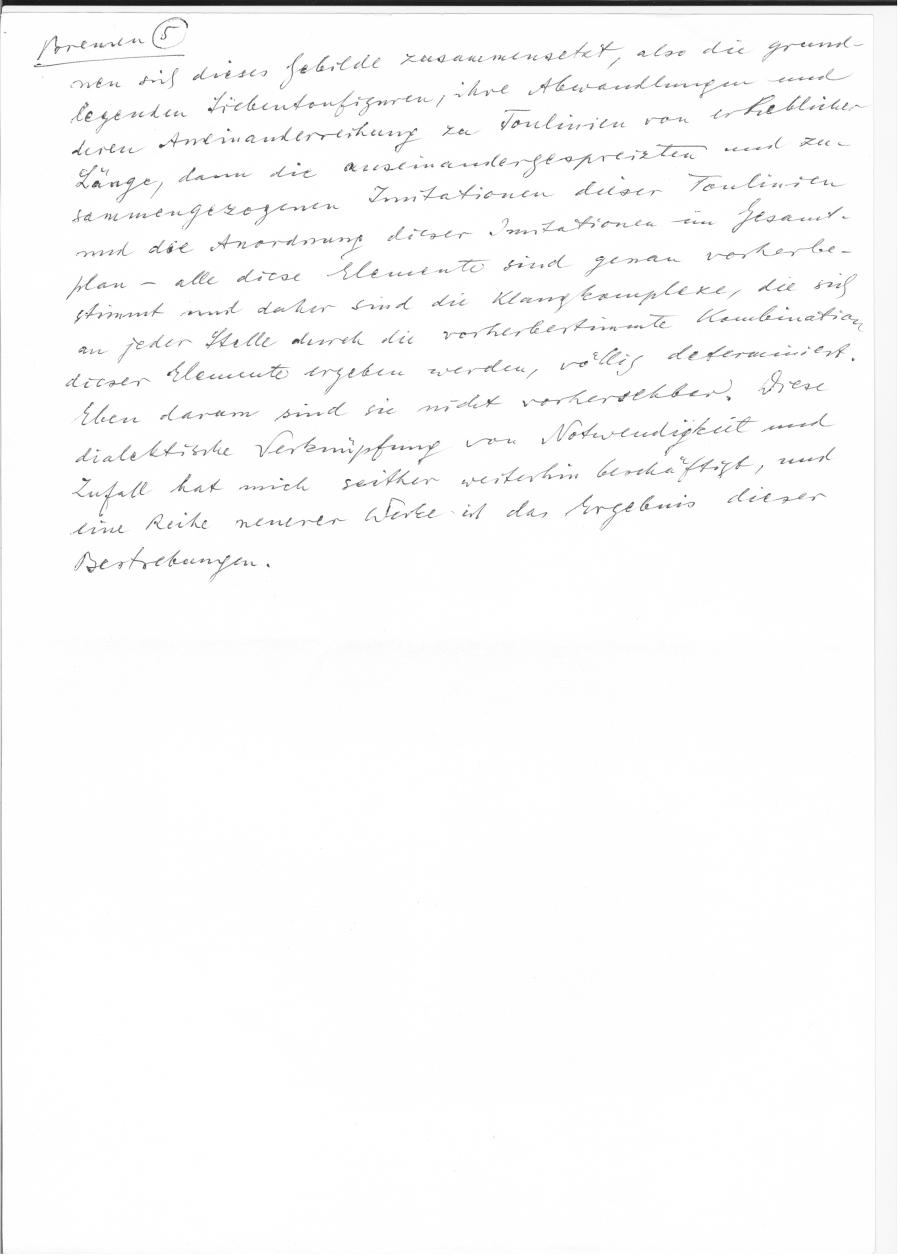 Bremen 5
nen sich dieses Gebilde zusammensetzt, also die grund-
legenden Siebentonfiguren, ihre Abwandlungen und
deren Aneinanderreihung zu Tonlinien von erheblicher
Länge, dann die auseinandergespreizten und zu-
sammengezogenen Imitationen dieser Tonlinien
und die Anordnung dieser Imitationen im Gesamt-
plan – alle diese Elemente sind genau vorherbe-
stimmt und daher sind die Klangkomplexe, die sich
an jeder Stelle durch die vorherbestimmte Kombination
dieser Elemente ergeben werden, völlig determiniert.
Eben darum sind sie nicht vorhersehbar. Diese
dialektische Verknüpfung von Notwendigkeit und
Zufall hat mich seither weiterhin beschäftigt, und
eine Reihe neuerer Werke ist das Ergebnis dieser
Bestrebungen.